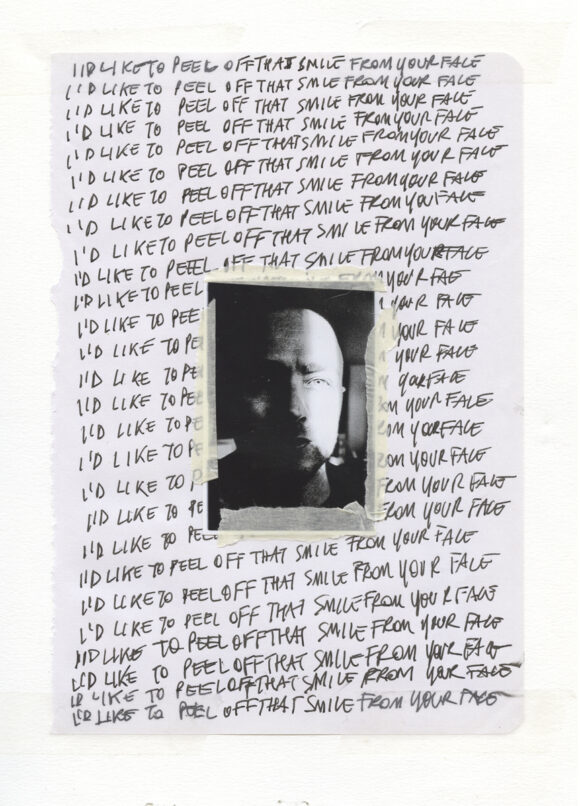 I'D LIKE TO PEEL OFF THAT SMILE FROM YOUR FACE
I'D LIKE TO PEEL OFF THAT SMILE FROM YOUR FACE
I'D LIKE TO PEEL OFF THAT SMILE FROM YOUR FACE
I'D LIKE TO PEEL OFF THAT SMILE FROM YOUR FACE
I'D LIKE TO PEEL OFF THAT SMILE FROM YOUR FACE
I'D LIKE TO PEEL OFF THAT SMILE FROM YOUR FACE
I'D LIKE TO PEEL OFF THAT SMILE FROM YOUR FACE
I'D LIKE TO PEEL OFF THAT SMILE FROM YOUR FACE
I'D LIKE TO PEEL OFF THAT SMILE FROM YOUR FACE
I'D LIKE TO PEEL OFF THAT SMILE FROM YOUR FACE
I'D LIKE TO PEEL FROM YOUR FACE
I'D LIKE TO YOUR FACE
I'D LIKE TO YOUR FACE
I'D LIKE TO YOUR FACE
I'D LIKE TO YOUR FACE
I'D LIKE TO YOUR FACE
I'D LIKE TO YOUR FACE
I'D LIKE TO YOUR FACE
I'D LIKE TO FROM YOUR FACE
I'D LIKE TO FROM YOUR FACE
I'D LIKE TO PEEL OFF THAT SMILE FROM YOUR FACE
I'D LIKE TO PEEL OFF THAT SMILE FROM YOUR FACE
I'D LIKE TO PEEL OFF THAT SMILE FROM YOUR FACE
I'D LIKE TO PEEL OFF THAT SMILE FROM YOUR FACE
I'D LIKE TO PEEL OFF THAT SMILE FROM YOUR FACE
I'D LIKE TO PEEL OFF THAT SMILE FROM YOUR FACE
I'D LIKE TO PEEL OFF THAT SMILE FROM YOUR FACE